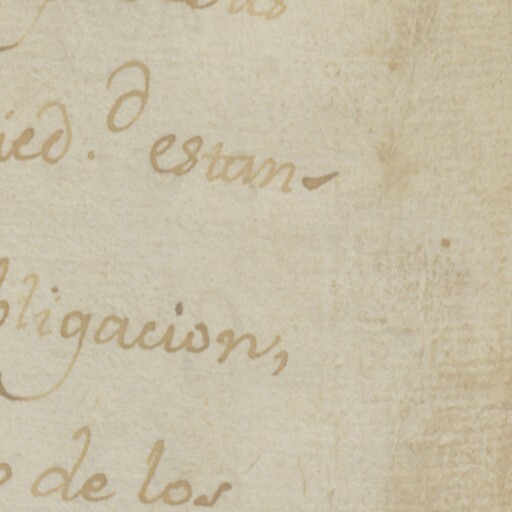 ied.d estan-
bligacion,
de los